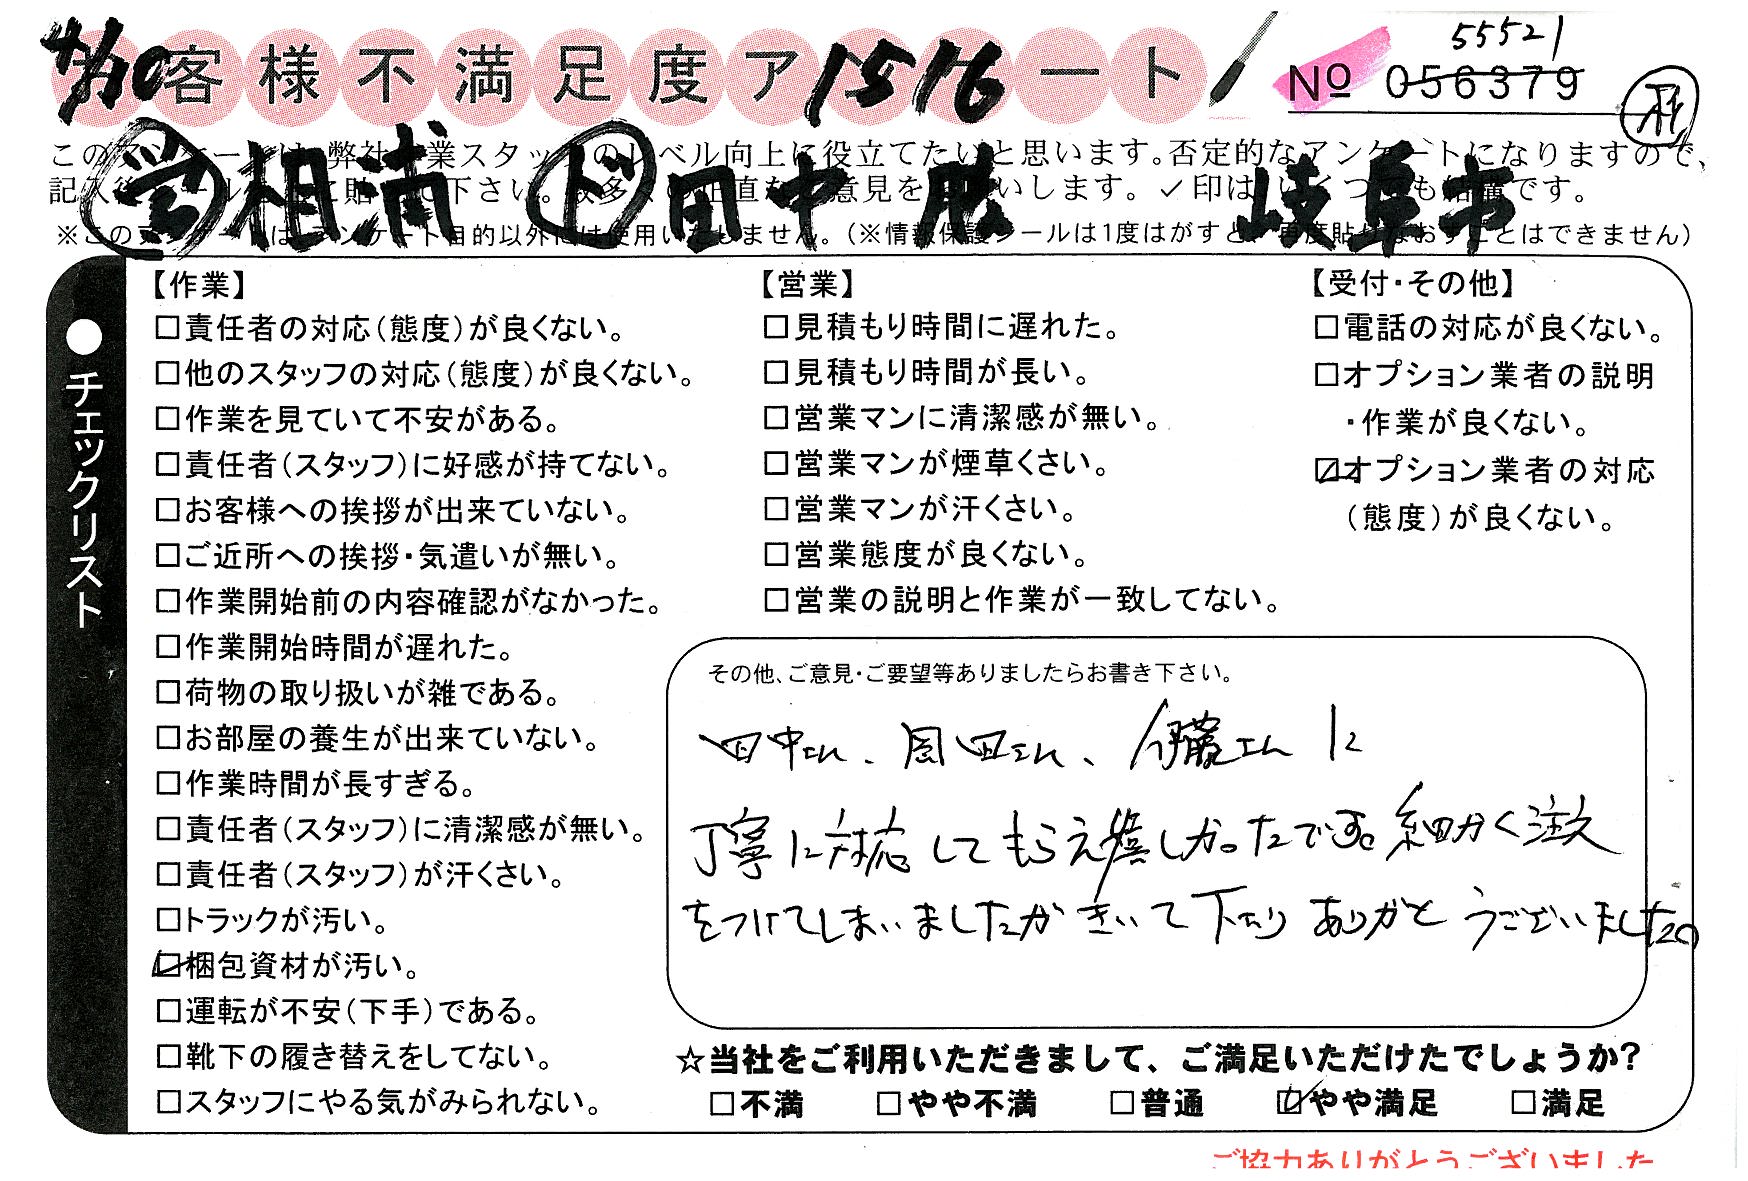 4/10 お客様不満足度アンケート 1516
No 056379 55521
このアンケートは、弊社作業スタッフのレベル向上に役立てたいと思います。否定的なアンケートになりますので、
記入後シールを上に貼って下さい。数多くの正直なご意見をお願いします。✓印はいくつでも結構です。
※このアンケートは、アンケート目的以外には使用いたしません。(※情報保護シールは1度はがすと、再度貼りなおすことはできません)
営 相浦 ド 田中 岐阜市
●チェックリスト
【作業】
□責任者の対応(態度)が良くない。
□他のスタッフの対応(態度)が良くない。
□作業を見ていて不安がある。
□責任者(スタッフ)に好感が持てない。
□お客様への挨拶が出来ていない。
□ご近所への挨拶・気遣いが無い。
□作業開始前の内容確認がなかった。
□作業開始時間が遅れた。
□荷物の取り扱いが雑である。
□お部屋の養生が出来ていない。
□作業時間が長すぎる。
□責任者(スタッフ)に清潔感が無い。
□責任者(スタッフ)が汗くさい。
□トラックが汚い。
☑梱包資材が汚い。
□運転が不安(下手)である。
□靴下の履き替えをしてない。
□スタッフにやる気がみられない。
【営業】
□見積もり時間に遅れた。
□見積もり時間が長い。
□営業マンに清潔感が無い。
□営業マンが煙草くさい。
□営業マンが汗くさい。
□営業態度が良くない。
□営業の説明と作業が一致してない。
【受付・その他】
□電話の対応が良くない。
□オプション業者の説明
・作業が良くない。
☑オプション業者の対応
(態度)が良くない。
その他、ご意見・ご要望等ありましたらお書き下さい。
田中さん、周田さん、伊藤さんに
丁寧に対応してもらえ嬉しかったです。細かく注文
をつけてしまいましたがきいて下さり ありがとうございました。
☆当社をご利用いただきまして、ご満足いただけたでしょうか?
□不満 □やや不満 □普通 ☑やや満足 □満足
ご協力ありがとうございました